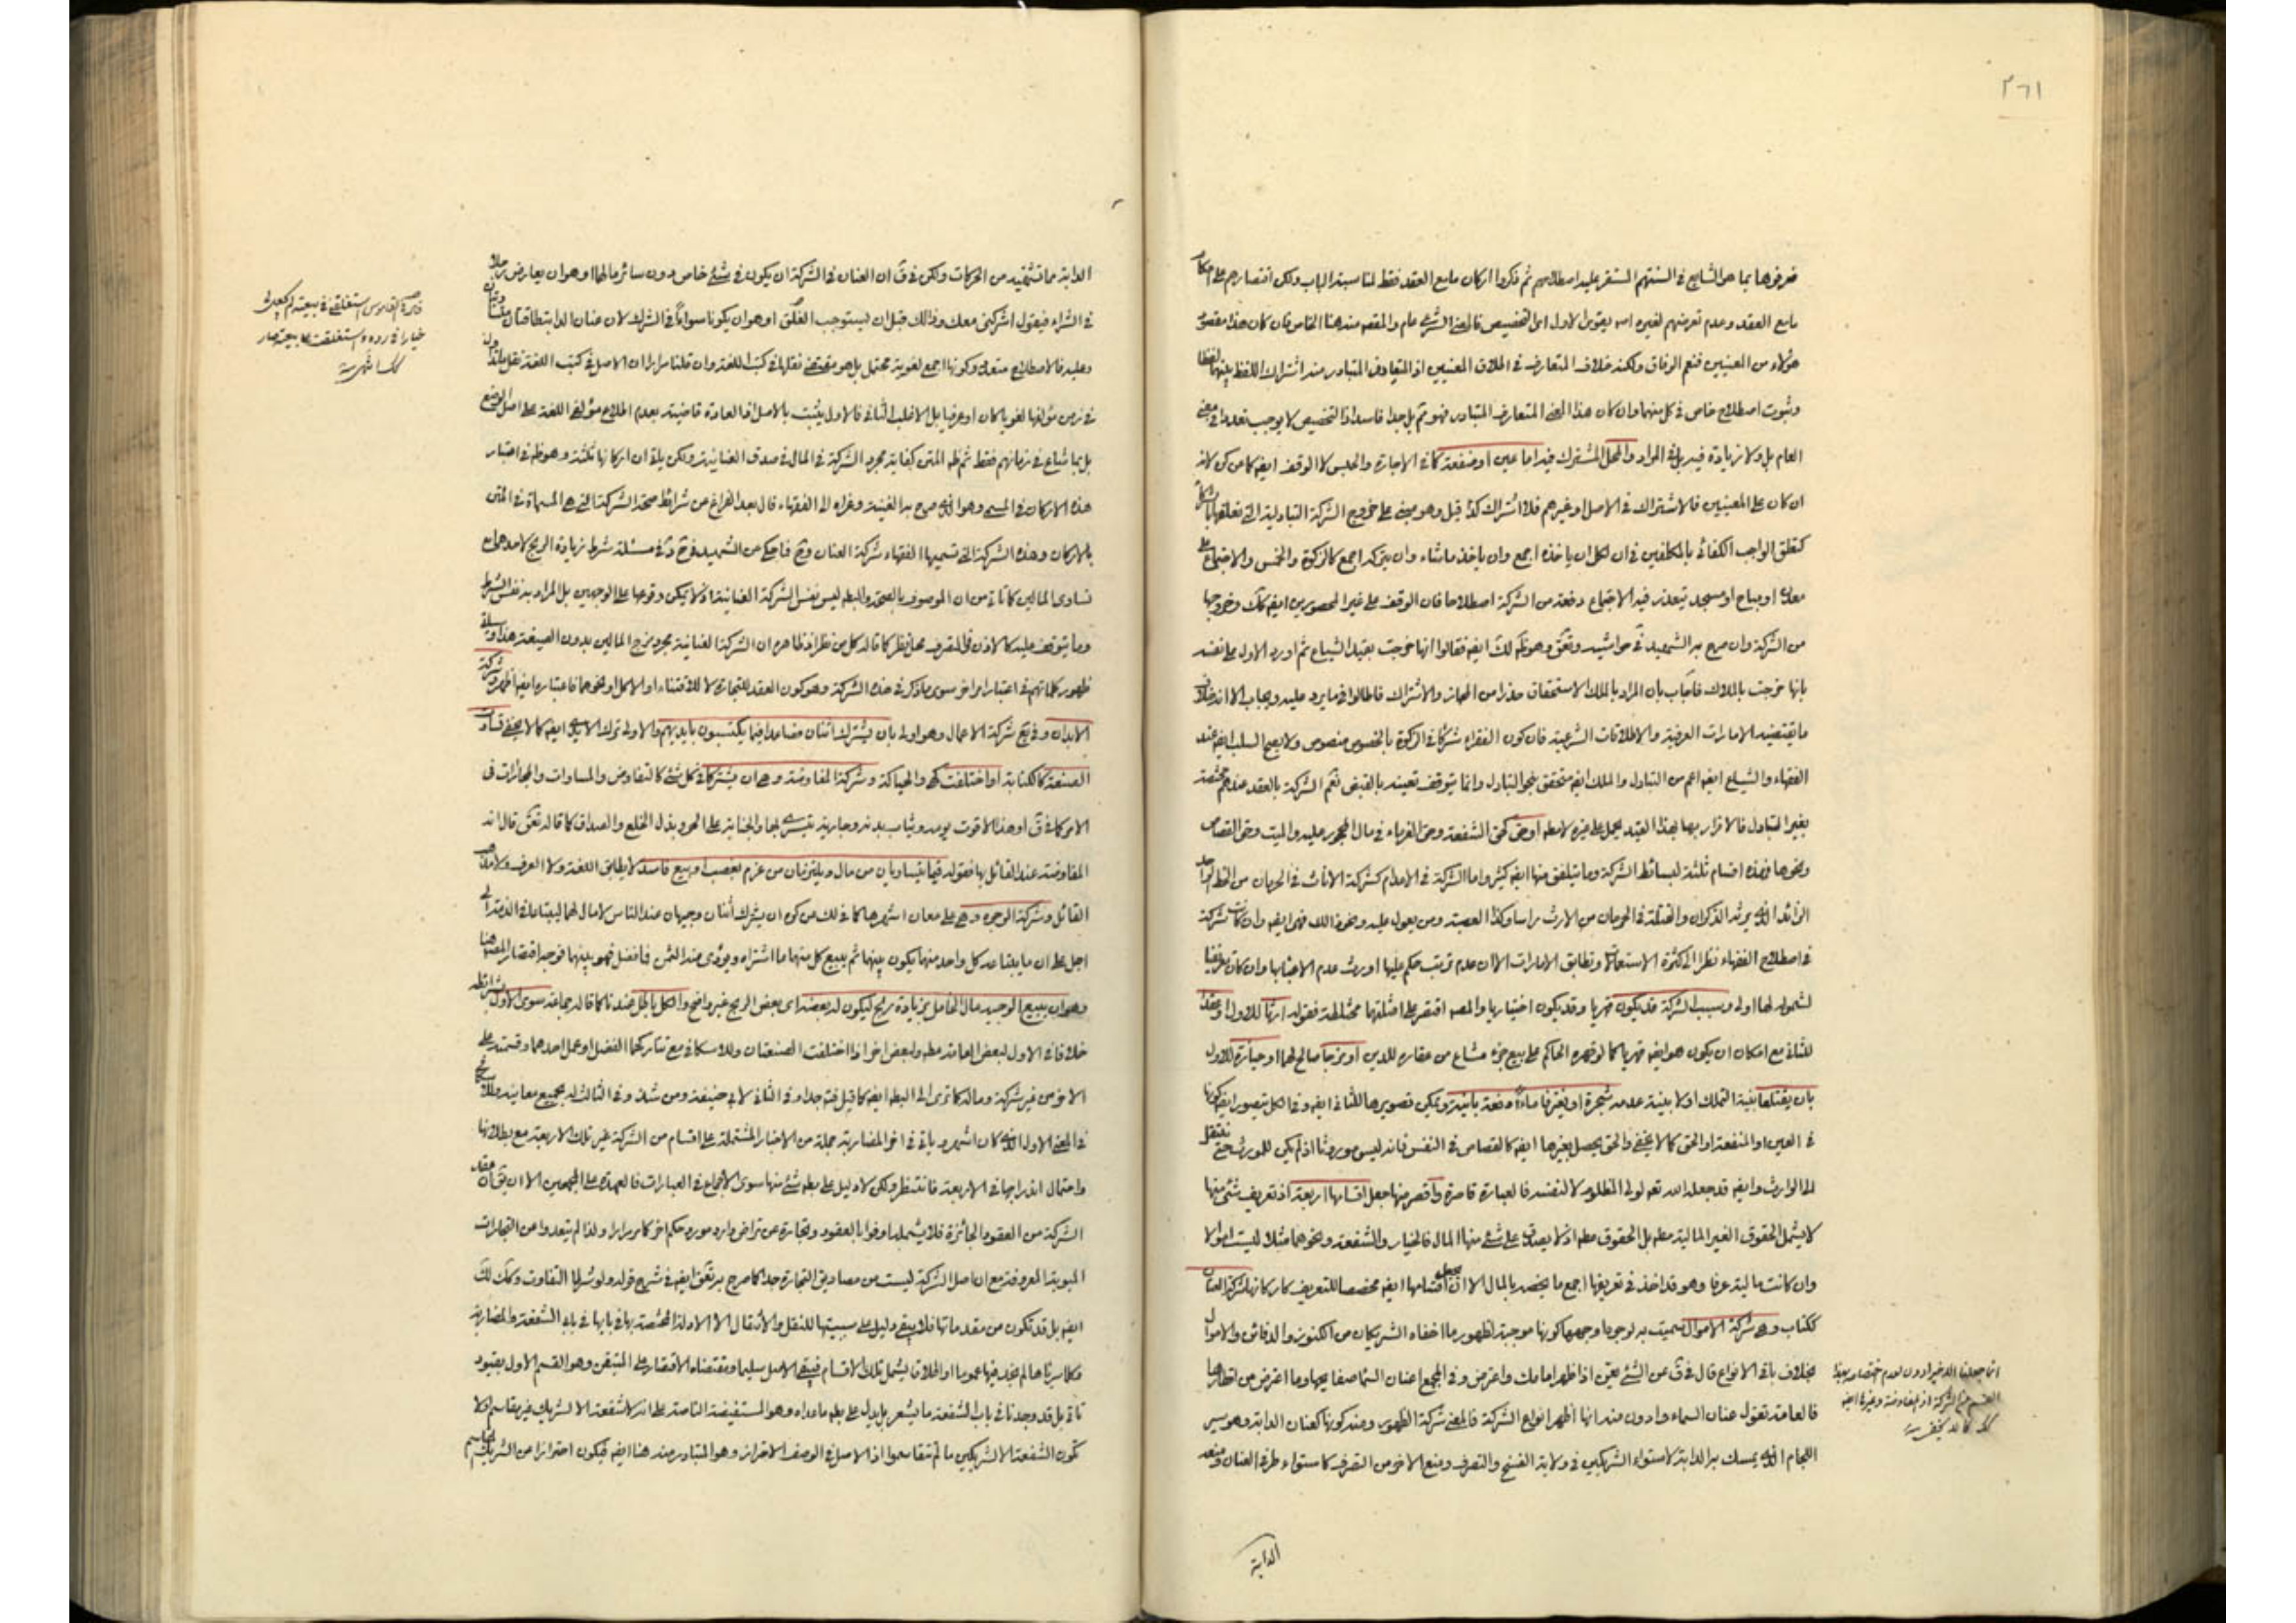 ٣٦١
عرفوها بما هو الشايع في السنتهم المستقر عليه اصطلاحهم ثم ذكروا اركان مايع العقد فقط لمناسبته الباب ولكن اقتصارهم على
مايع العقد وعدم تعرضهم لغيره
هؤلاء من المعنيين فنعم الوفاق ولكنه خلاف المتعارف في اطلاق المعنيين اذ المتعارف المتبادر منه اشتراك اللفظ بينهما لفظا
وثبوت اصطلاح خاص في كل منهما وان كان هذا المعنى المتعارف المتبادر فهو ثم بل جدا فاسد اذ التخصيص لا يوجب تعددا في معنى
العام بل ولا زيادة فيه بل في المواد والمحل المشترك فيه اما عين او منفعة كما في الاجارة والحبس لا الوقف
ان كان على المعينين فالاشتراك في الاصل او غيرهم فلا اشتراك كذا قيل وهو مبني على خروج الشركة التبادلية التي تعلقها
كتعلق الواجب الكفائي بالمكلفين في ان لكل ان ياخذه اجمع وان ياخذ ما شاء وان يتركه اجمع كالزكوة والخمس والاجتماع على
معدن او مباح او مسجد يتعذر فيه الاجتماع دفعة من الشركة اصطلاحا فان الوقف على غير المحصورين ايضا كك وخروجها
من الشركة وان صرح به الشهيد في حواشيه
بانها خرجت بالملاك فاجاب بان المراد بالملك الاستحقاق حذرا من المجاز والاشتراك فاطالوا فيما يرد عليه ويجاب الا انه خلاف
ما يقتضيه الامارات العرفية والاطلاقات الشرعية فان كون الفقراء شركاء في الزكوة بالخصوص منصوص ولا يصح السلب ايضا عند
الفقهاء والشياع ايضا اعم من التبادل والملك ايضا متحقق بنحو التبادل وانما يتوقف تعيينه بالقبض نعم الشركة بالعقد عندهم مختصة
بغير التبادل فالاقرار بها بهذا القيد يحمل على غيره لا مطلقا او حق كحق الشفعة وحق الغرماء في مال المحجور عليه والميت وحق القصاص
ونحوها فهذه اقسام ثلثة لبسائط الشركة وما يتلفق منها ايضا كثير واما الشركة في الاعدام كشركة الاناث في الحرمان من
الزائد الذي يرثه الذكران في الحرمان من الارث راسا وكذا العصبة ومن يعول عليه ونحو ذلك فهي ايضا وان كانت شركة
في اصطلاح الفقهاء نظرا الى كثرة الاستعمال وتطابق الامارات الا ان عدم ترتب حكم عليها اورث عدم الاعتناء بها وان كان تعريفنا
لشموله لها اولى وسبب الشركة قد يكون قهريا وقد يكون اختياريا والمصنف اقتصر على امثلتهما مختلطة فقوله ارثا للاول او عقدا
للثاني مع امكان ان يكون هو ايضا قهريا كما لو قهره الحاكم على بيع جزء مشاع من عقاره للدين او مزجا صالح لهما او حيازة للاول
بان يقتلعا بنية التملك اولا بنية عدمه شجرة او يغترفا ماء دفعة بانية ويمكن تصويرها للثاني ايضا وفي الكل يتصور ايضا كونها
في العين او المنفعة او الحق كما لا يخفى والحق يحصل بغيرها ايضا كالقصاص في النفس فانه ليس موروثا اذ لم يكن للمورث حتى ينتقل
الى الوارث وايضا قد جعله الله تعالى لولي المظلوم لا لنفسه فالعبارة قاصرة واقصر منها جعل اقسامها اربعة اذ تعريف شيء منها
لا يشمل الحقوق الغير المالية مطلقا بل الحقوق مطلقا اذ لا يصدق على شيء منها المال فالخيار والشفعة ونحوهما مثلا ليست اموالا
وان كانت مالية عرفا وهو قد اخذ في تعريفها اجمع ما يخصه بالمال الا ان يجعل اقسامها ايضا مخصصا للتعريف كاركانه شركة العنان
ككتاب وهي شركة الاموال سميت به لوجوه وجهها كونها موجبة لظهور ما اخفاه الشريكان من الكنوز والدفائن والاموال
بخلاف باقي الانواع قال في ق عن الشيء يعن اذا ظهر امامك واعترض وفي المجمع اعنان السماء صفايحها وما اعترض من اقطارها
فالعامة تقول عنان السماء وادون منه انها اظهر انواع الشركة فالمعنى شركة الظهور ومنه كونها كعنان الدابة وهو سير
اللجام الذي يمسك به الدابة لاستواء الشريكين في ولاية الفسخ والتصرف ومنع الاخر من التصرف كاستواء طرفي العنان ومنعه
الدابة
انما جعلنا الاخير ادون لعدم اختصاصه بهذا
القسم من الشركة اذ المفاوضة وغيرها ايضا
كك كما لا يخفى منه
الدابة مما تشتهيه من الحركات ولكن في ق ان العنان في الشركة ان يكون في شيء خاص دون سائر مالهما او هو ان يعارض رجلا
في الشراء فيقول اشركني معك وذلك قبل ان يستوجب الغلق او هو ان يكونا سواء في الشرك لان عنان الدابة طاقتان متساويتان
وعليه فالاصطلاح متعدد وكونها اجمع لغوية محتمل بل هو مقتضى نقلها في كتب اللغة وان قلنا مرارا ان الاصل في كتب اللغة نقل ما
في زمن مؤلفها لغويا كان او عرفيا بل الاغلب الثاني فالاول يثبت بالاصل اذ العادة قاضية بعدم اطلاع مؤلفي اللغة على اصل الوضع
بل بما شاع في زمانهم فقط ثم ظاهر المتن كفاية مجرد الشركة في المال في صدق العنانية ولكن ياتي ان اركانها ثلثة وهو ظاهر في اعتبار
هذه الاركان في المسمى وهو الذي صرح به الغنية وعزاه الى الفقهاء قال بعد الفراغ من شرائط صحة الشركة التي هي المسماة في المتن
بالاركان وهذه الشركة التي تسميها الفقهاء شركة العنان وح فما حكي عن الشهيد في مسئلة شرط زيادة الربح لاحدهما مع
تساوي المالين كما ياتي من ان الموصوف بالصحة والبطلان ليس نفس الشركة العنانية اذ لا يمكن وقوعها على الوجهين بل المراد به نفس الشرط
وما يتوقف عليه كالاذن في التصرف محل نظر كما قاله كل من نظر اذ ظاهره ان الشركة العنانية مجرد مزج المالين بدون الصيغة هذا
ظهور كلماتهم في اعتبار امر اخر سوى ما ذكر في هذه الشركة وهو كون العقد للتجارة لا للاقتناء او الاكل او نحوهما فاعتباره ايضا اظهر وشركة
الابدان وفي شركة الاعمال وهو اولى بان يشترك اثنان فصاعدا فيما يكتسبون بايديهم والاولى ترك الايدي ايضا كما لا يخفى تساوت
الصنعة كالكتابة او اختلفت كهي والحياكة وشركة المفاوضة وهي ان يشتركا في كل شيء كالتفاوض والمساوات والمجارات في
الامر كما في ق او هذا الا قوت يومه وثياب بدنه وجارية يتسرى بها والجناية على الحر وبذل الخلع والصداق كما قاله
المفاوضة عند القائل بها فقوله فيما يتساويان من مال ويلتزمان من غرم بغصب او بيع فاسد لا يطابق اللغة ولا العرف ولا
القائل وشركة الوجوه وهي على معان اشهرها كما في لك من كون ان يشترك اثنان وجيهان عند الناس لا مال لهما ليبتاعا في الذمة الى
اجل على ان ما يبتاعه كل واحد منهما يكون بينهما ثم يبيع كل منهما ما اشتراه ويؤدي منه الثمن فما فضل فهو بينهما فوجه اقتصار المصنف هنا
وهو ان يبيع الوجيه مال الخامل بزيادة ربح ليكون له بعضه اى بعض الربح غير واضح والكل باطل عندنا كما قاله جماعة سوى الاول
خلافا في الاول لبعض العامة مطلقا ولبعض اخر اذا اختلفت الصنعتان وللاسكافي مع تتاركهما الفضل او عمل احدهما وقسمته على
الاخر من غير شركة
في المعنى الاول الذي كان اشهر وياتي في اخر المضاربة جملة من الاخبار المشتملة على اقسام من الشركة غير تلك الاربعة مع بطلانها
واحتمال اندراجها في الاربعة فانتظر ولكن لا دليل على بطلان شيء منها سوى الاجماع في العبارات فالعمدة على المجمعين الا ان يقال ان عقد
الشركة من العقود الجائزة فلا يشمله اوفوا بالعقود وتجارة عن تراض وارد مورد حكم اخر كما مر مرارا ولذا لم يتعدوا عن التجارات
المبوبة المعروفة مع ان اصل الشركة ليست من مصاديق التجارة جدا كما صرح به ايضا في شرح قوله ولو شرطا التفاوت
ايضا بل قد تكون من مقدماتها فلا يبقى دليل على سببيتها للنقل والانتقال الا الادلة المختصة بها في بابها في بابي الشفعة والمضاربة
وكلما سيرناها لم نجد فيها عموما او اطلاقا يشمل تلك الاقسام فيبقى الاصل سليما ومقتضاه الاقتصار على المتيقن وهو القسم الاول بقيود
تاتي بل قد وجدنا في باب الشفعة ما يشعر بل يدل على بطلان ما عداه وهو المستفيضة الناصة على انه لا شفعة الا لشريك غير مقاسم اولا
تكون الشفعة الا لشريكين ما لم يتقاسموا اذ الاصل في الوصف الاحتراز وهو المتبادر منه هنا ايضا فيكون احترازا من الشريك المقاسم
استغلقني في بيعته لم يجعل لي
خيارا في رده واستغلقت على بيعته صار
كك منه